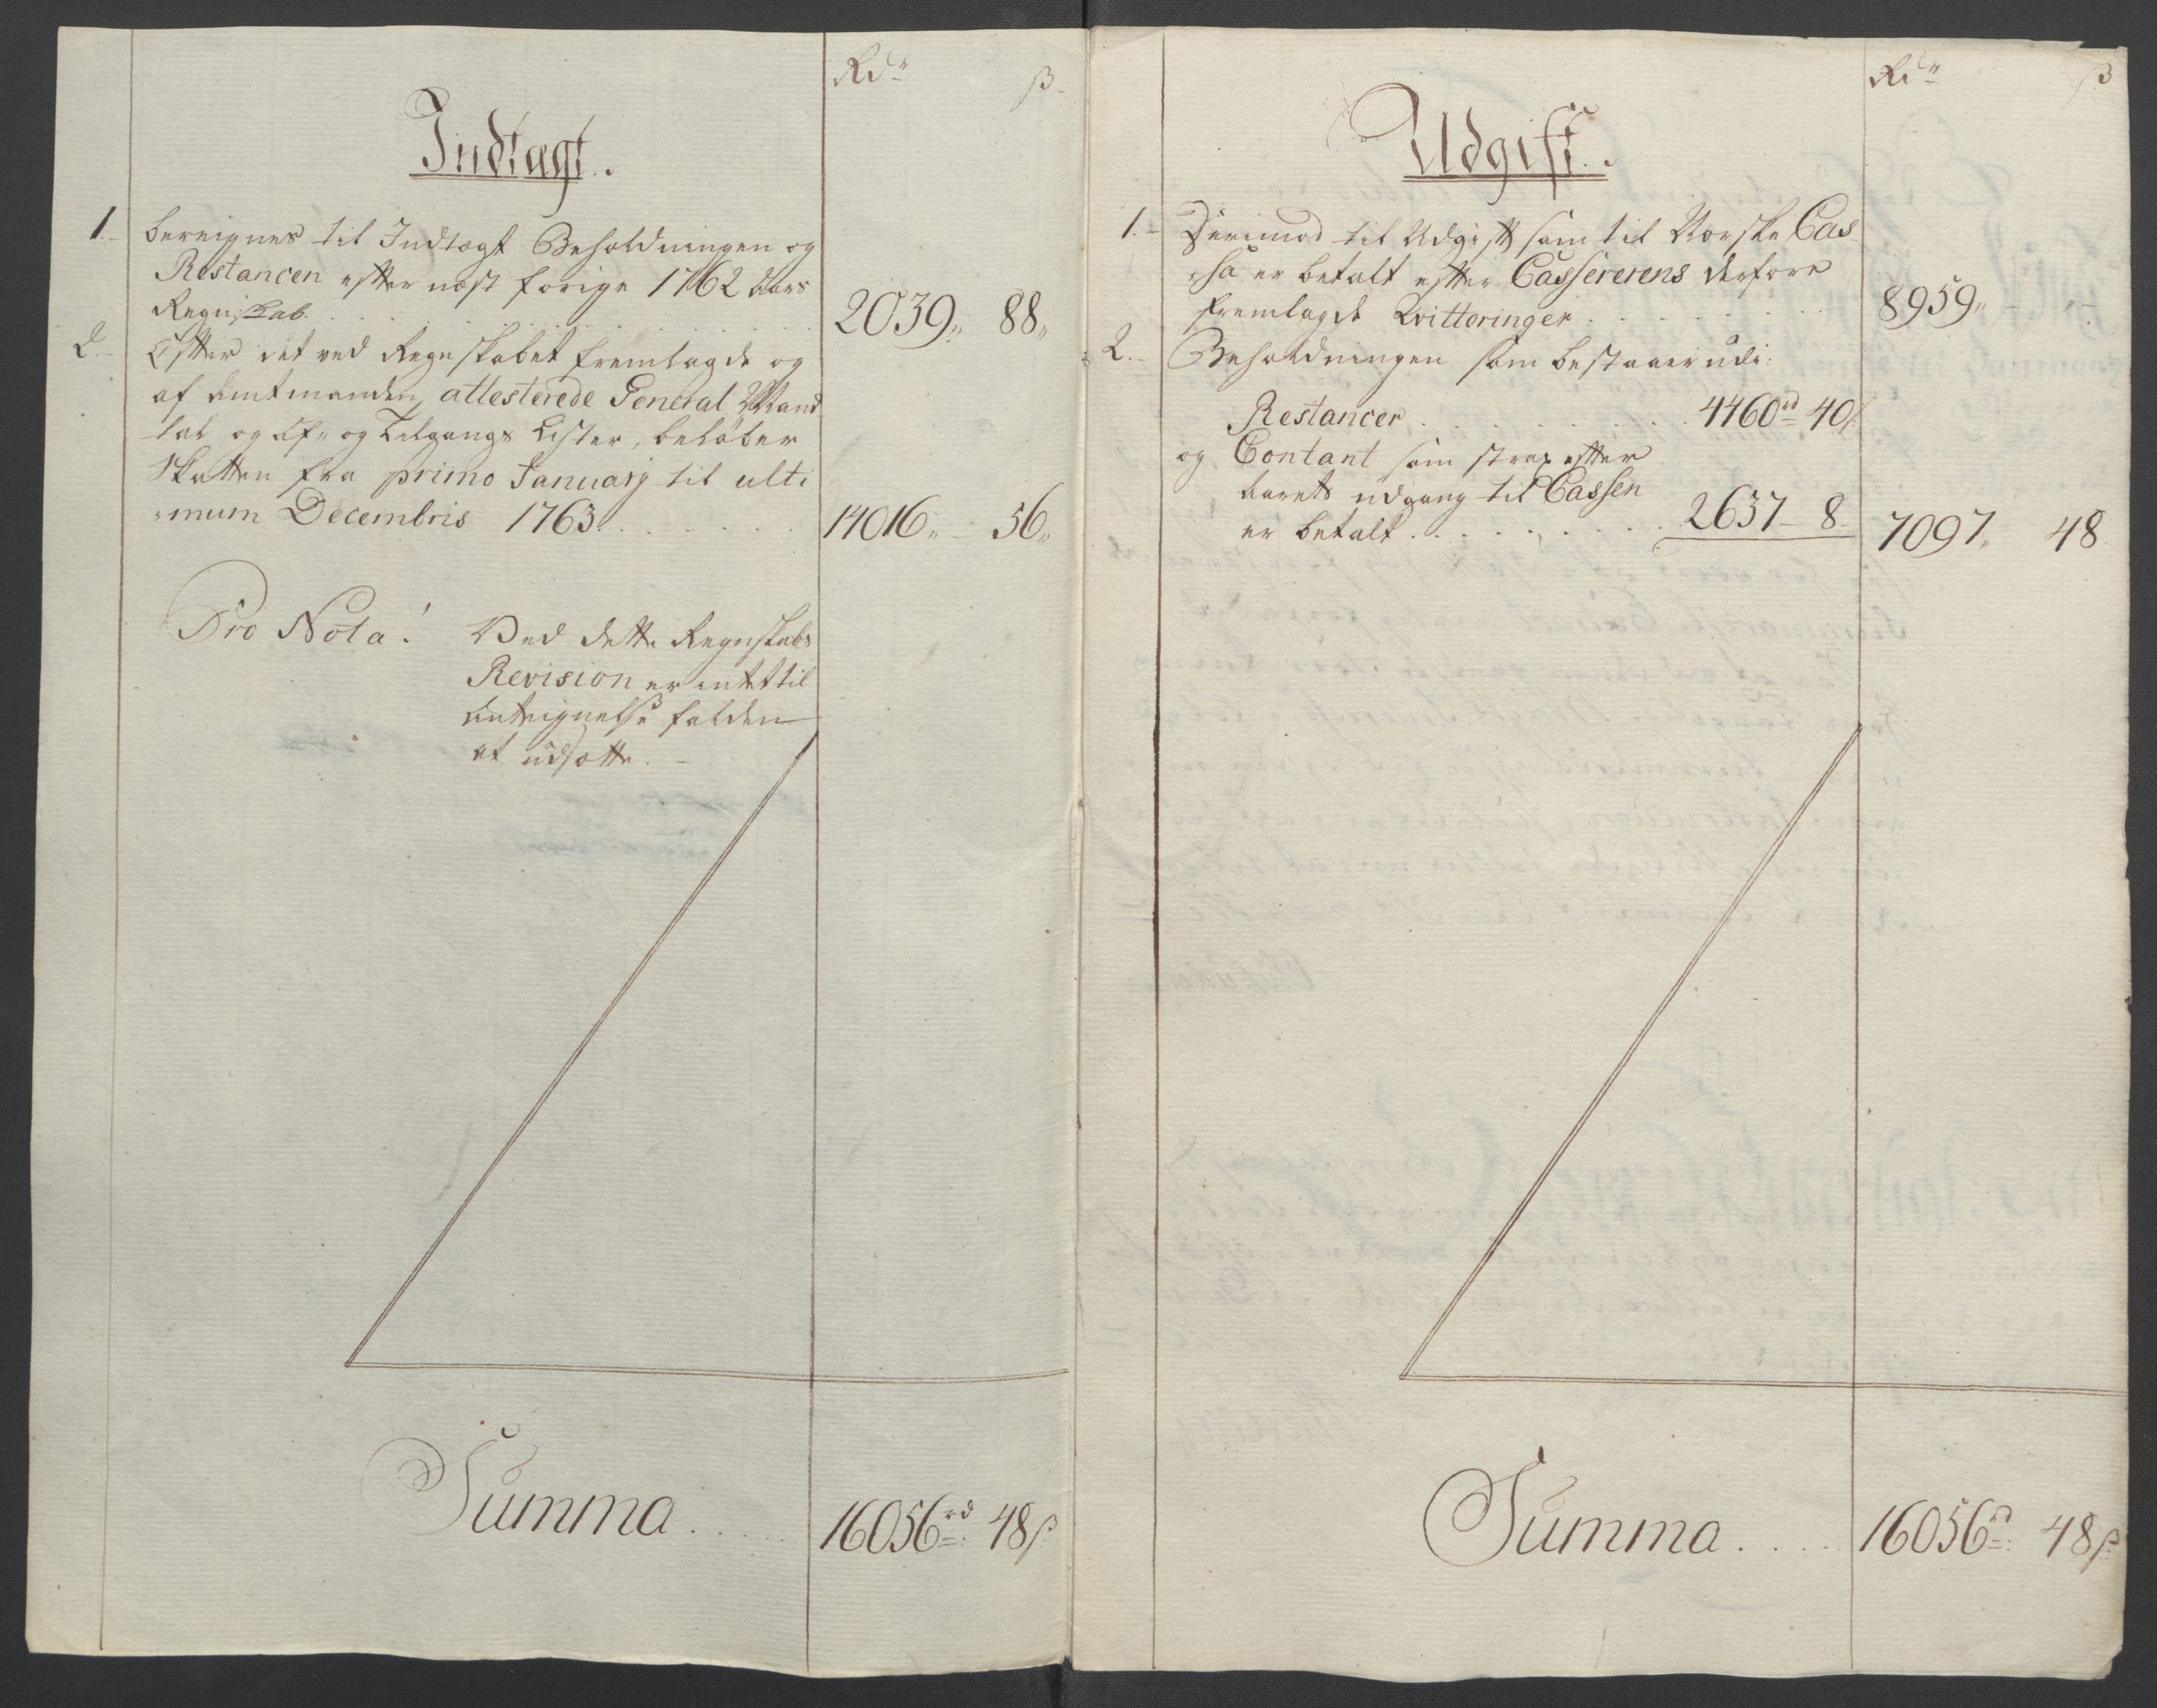 Rdr ß
Indtægt.
1. Bereignes til Indtægt Beholdningen og
Restancen efter næst forige 1762 Aars
Regnskab. 2039 " 88 "
2. Efter det ved Regnskabet fremlagde og
af Amtmanden attesterede General Mand
tal og Af- og Tilgangs Lister, beløber
Skatten fra primo Januarij til ulti
-mum Decembris 1763. 14016 " 56 "
Pro Nota! Ved dette Regnskabs
Revision er intet til
Antegnelse falden
at udsætte.
Summa . . . . 16056 rd 48 ß
Rdr ß
Udgift.
1. Derimod til Udgift som til Norske Cas-
-sa er betalt efter Cassererens derfore
fremlagde Qvitteringer 8959 " - " -
2. Beholdningen som bestaaer udi:
Restancer . . . 4460 rd 40 ß
og Contant som strax efter
Aarets udgang til Cassen
er betalt . . . 2637 - 8 - 7097 " 48
Summa . . . . 16056 rd 48 ß